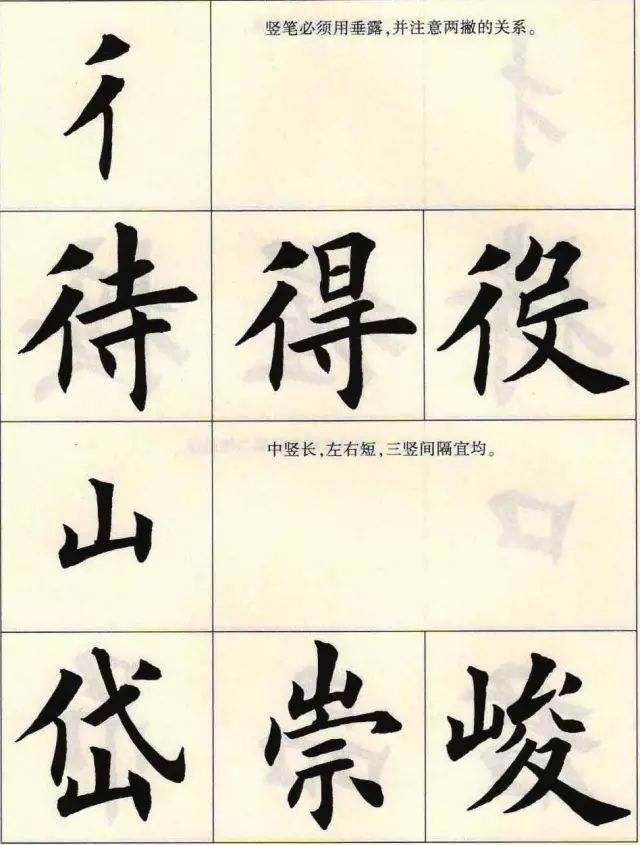 彳
竖笔必须用垂露，并注意两撇的关系。
待 得 役
山
中竖长，左右短，三竖间隔宜均。
岱 崇 峻